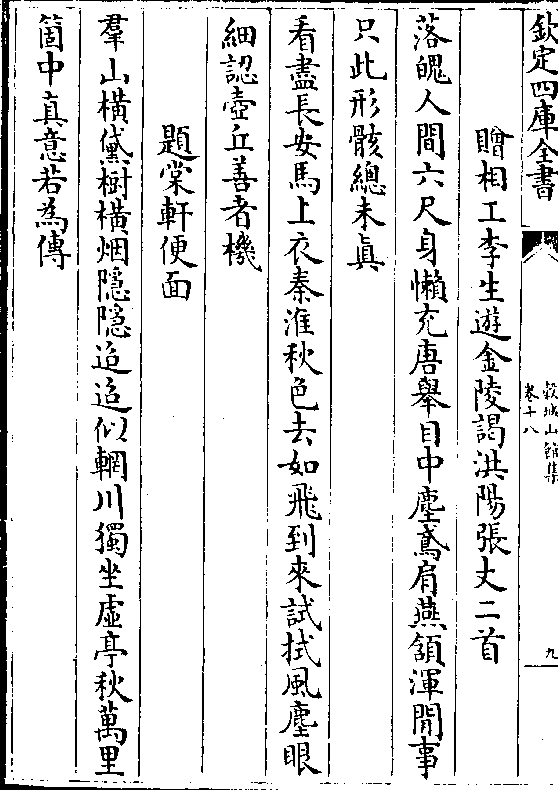 欽定四庫全書
穀城山館集
卷十八
九
贈相工李生遊金陵謁洪陽張丈二首
落魄人間六尺身懶充唐舉目中塵鳶肩燕頷渾閒事
只此形骸總未真
看盡長安馬上衣秦淮秋色去如飛到來試拭風塵眼
細認壺丘善者機
題棠軒便面
羣山橫黛樹橫烟隱隱迢迢似輞川獨坐虛亭秋萬里
箇中真意若為傳